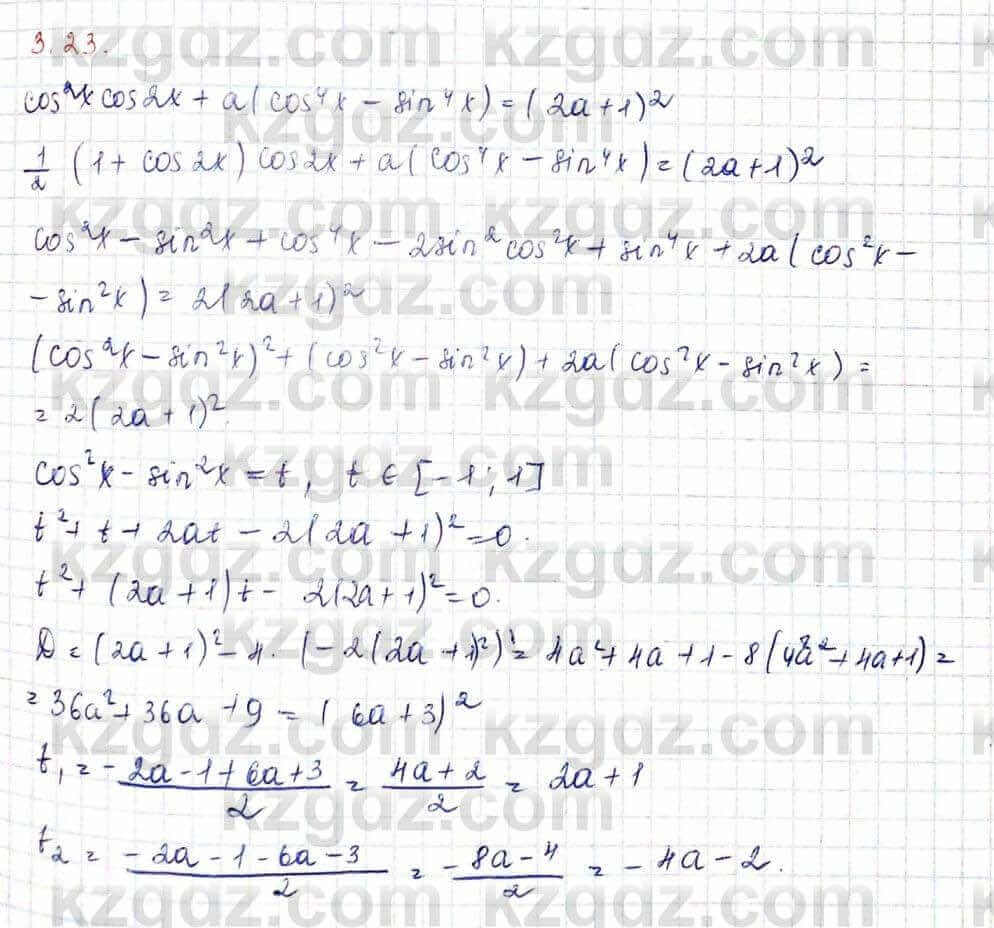 3.23.
cos²x cos2x + a(cos⁴x − sin⁴x) = (2a+1)²
1/2 (1 + cos2x) cos2x + a(cos⁴x − sin⁴x) = (2a+1)²
cos²x − sin²x + cos⁴x − 2sin² cos²x + sin⁴x + 2a(cos²x −
− sin²x) = 2(2a+1)²
(cos²x − sin²x)² + (cos²x − sin²x) + 2a(cos²x − sin²x) =
= 2(2a+1)².
cos²x − sin²x = t, t ∈ [−1; 1]
t² + t + 2at − 2(2a+1)² = 0.
t² + (2a+1)t − 2(2a+1)² = 0.
D = (2a+1)² − 4·(−2(2a+1)²) = 4a² + 4a + 1 − 8(4a² + 4a+1) =
= 36a² + 36a + 9 = (6a+3)²
t₁ = (−2a−1+6a+3)/2 = (4a+2)/2 = 2a+1
t₂ = (−2a−1−6a−3)/2 = (−8a−4)/2 = −4a−2.
kzgdz.com